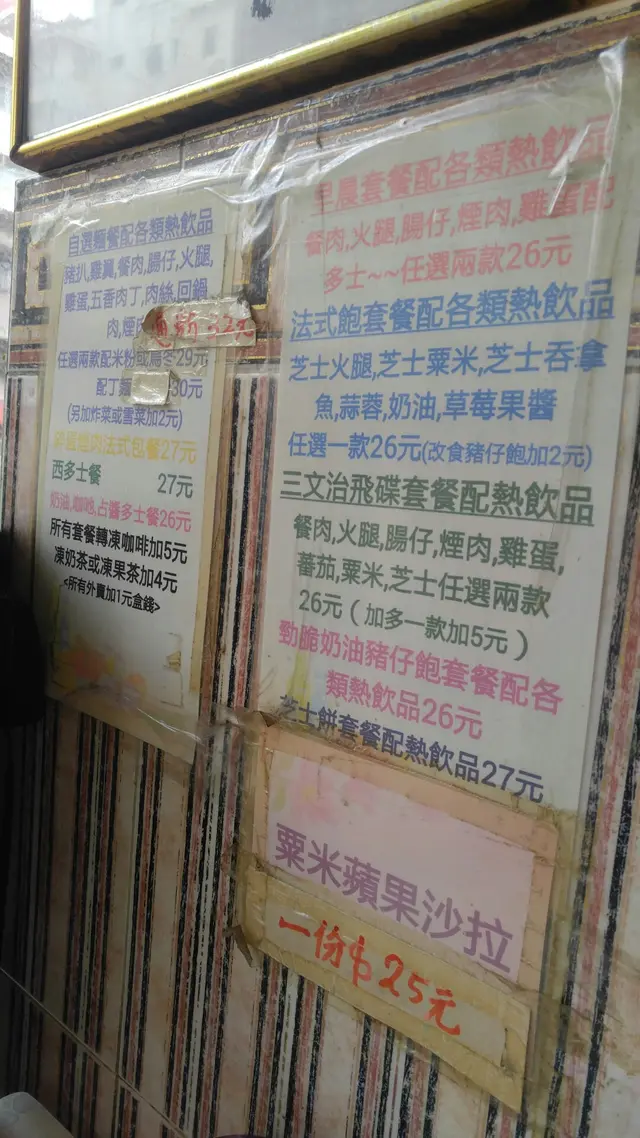 自選麵餐配各類熱飲品
豬扒,雞翼,餐肉,腸仔,火腿,
雞蛋,五香肉丁,肉絲,回鍋
肉,煙肉
任選兩款配米粉或烏冬29元
配丁麵 30元
(另加炸菜或雪菜加2元)
法式包餐27元
西多士餐 27元
奶油,咖吔,占醬多士餐26元
所有套餐轉凍咖啡加5元
凍奶茶或凍果茶加4元
<所有外賣加1元盒錢>
早晨套餐配各類熱飲品
餐肉,火腿,腸仔,煙肉,雞蛋配
多士~~任選兩款26元
法式飽套餐配各類熱飲品
芝士火腿,芝士粟米,芝士吞拿
魚,蒜蓉,奶油,草莓果醬
任選一款26元(改食豬仔飽加2元)
三文治飛碟套餐配熱飲品
餐肉,火腿,腸仔,煙肉,雞蛋,
蕃茄,粟米,芝士任選兩款
26元(加多一款加5元)
勁脆奶油豬仔飽套餐配各
類熱飲品26元
芝士餅套餐配熱飲品27元
粟米蘋果沙拉
一份$25元